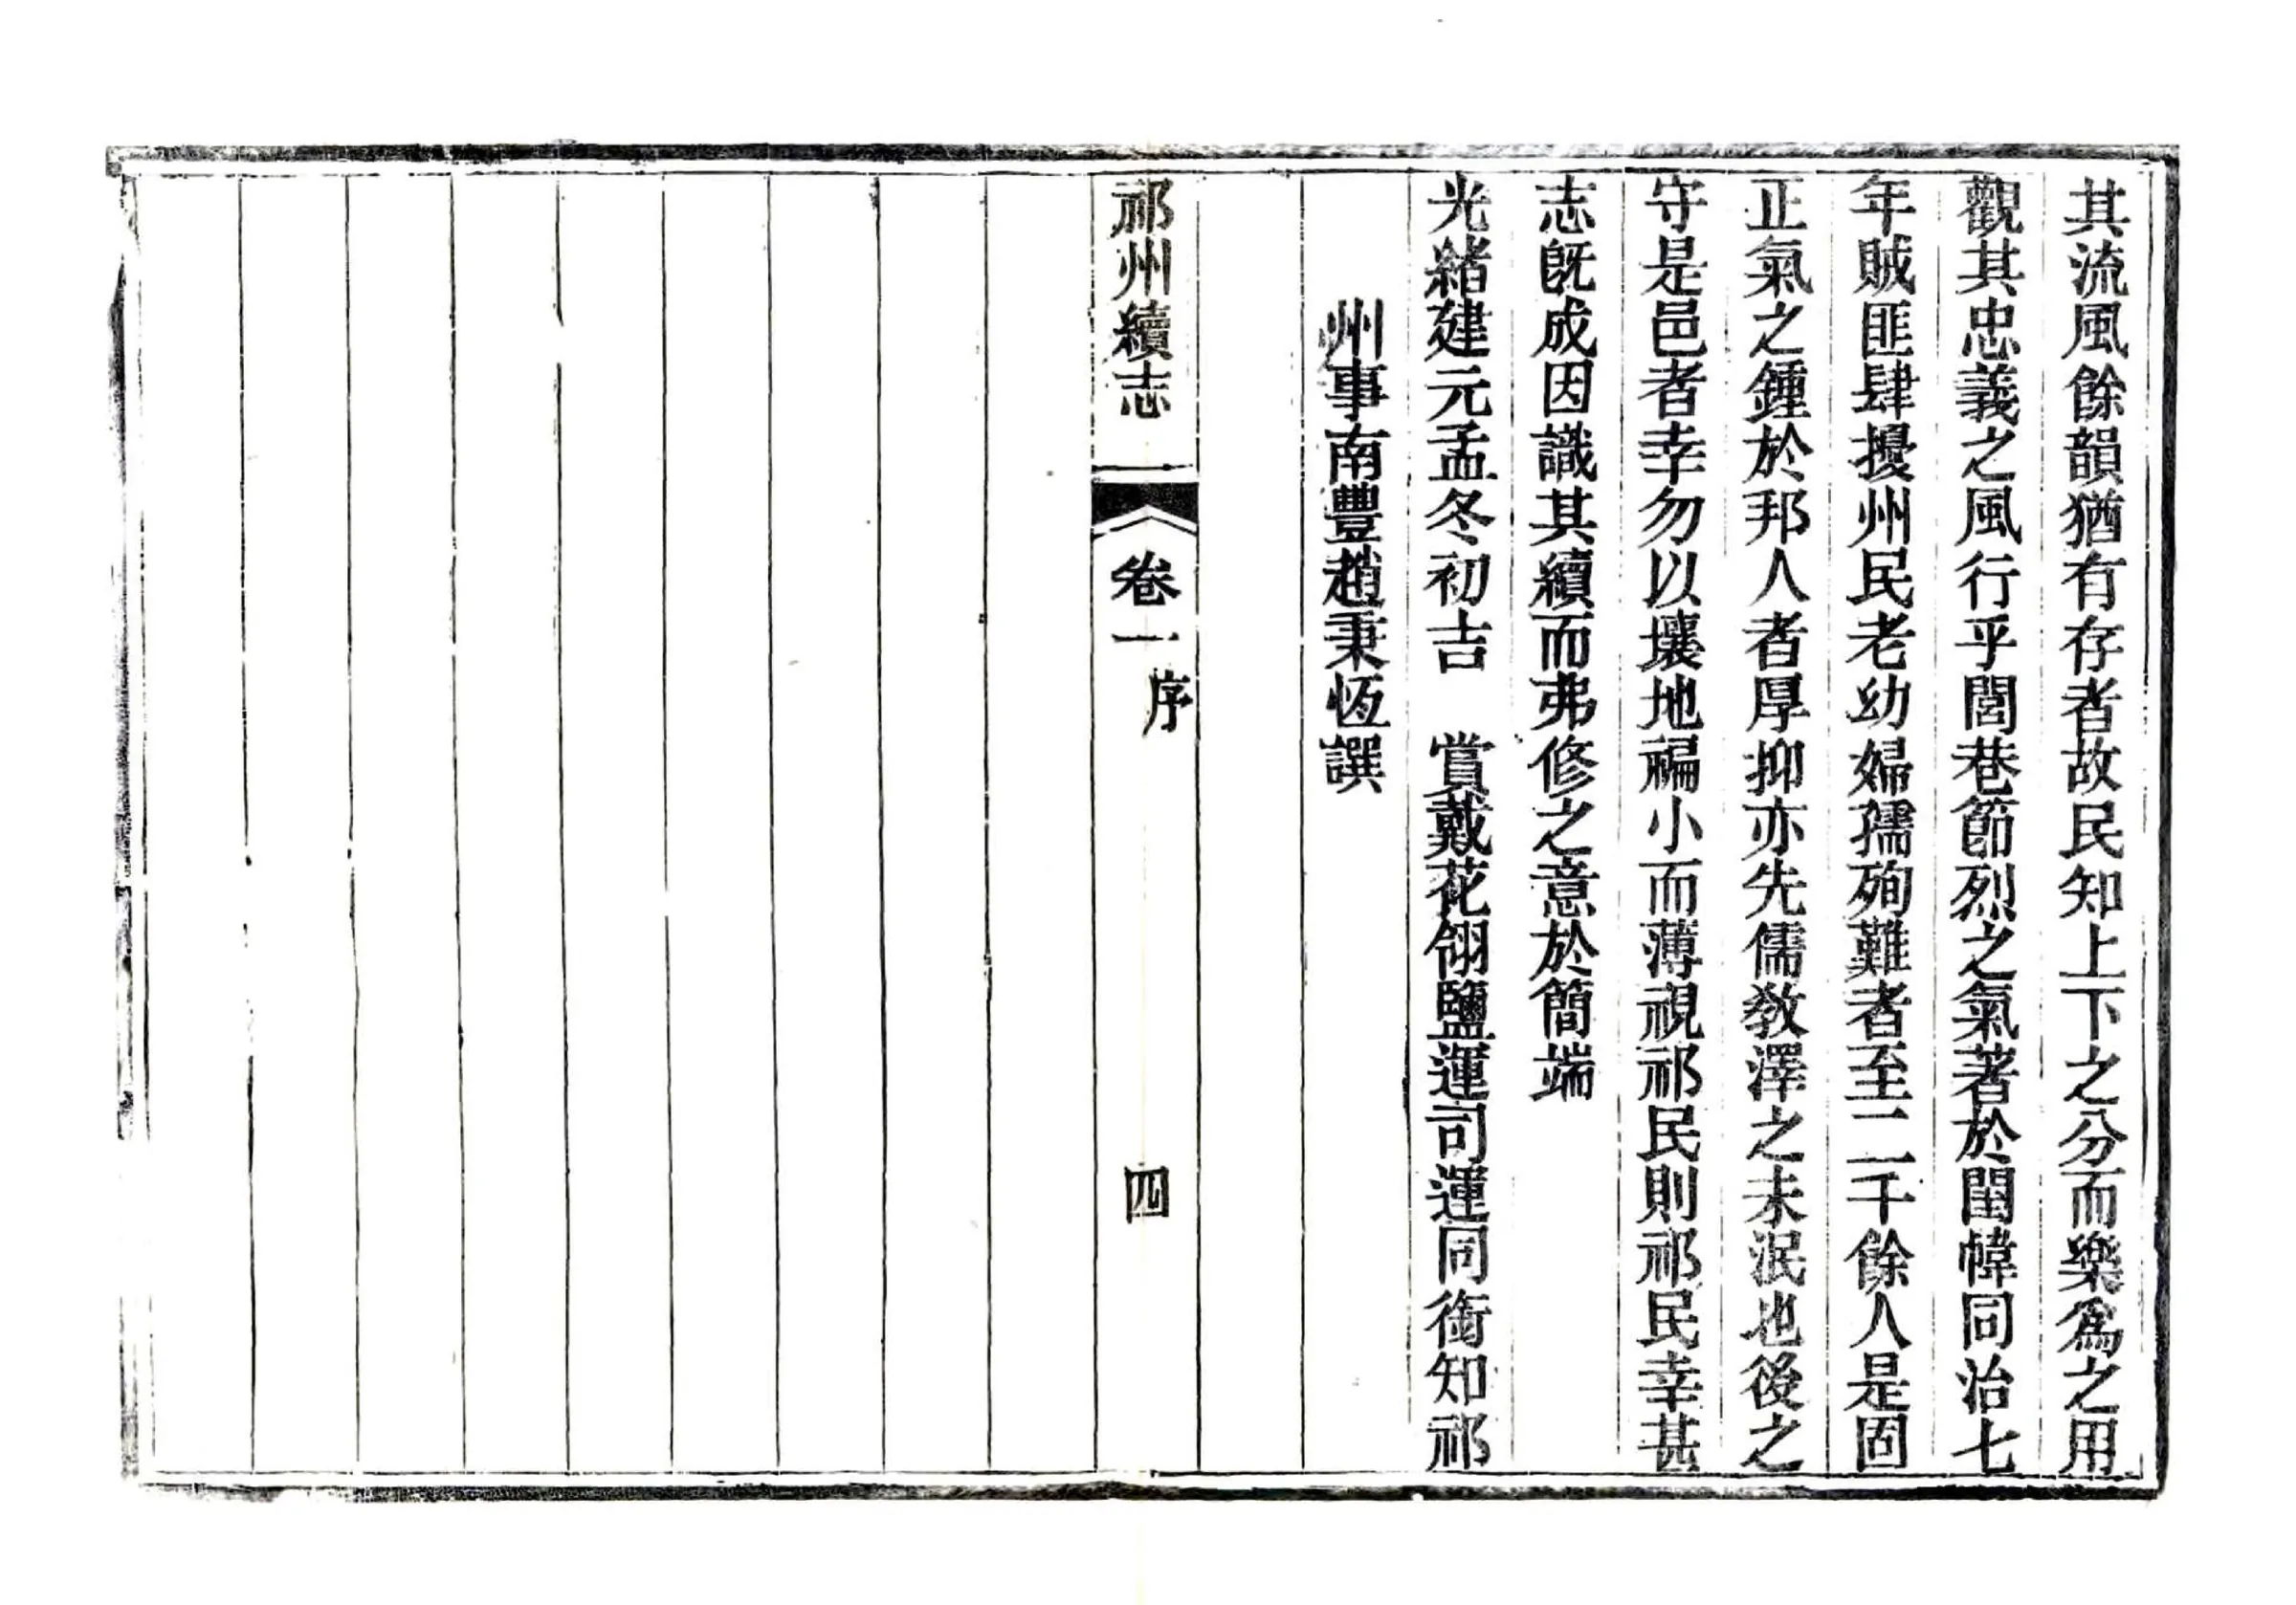 其流風餘韻猶有存者故民知上下之分而樂爲之用
觀其忠義之風行乎閭巷節烈之氣著於閨幃同治七
年賊匪肆擾州民老幼婦孺殉難者至二千餘人是固
正氣之鍾於邦人者厚抑亦先儒敎澤之未泯也後之
守是邑者幸勿以壤地褊小而薄視祁民則祁民幸甚
志旣成因識其續而弗修之意於簡端
光緒建元孟冬初吉　賞戴花翎鹽運司運同銜知祁
州事南豐趙秉恆譔
祁州續志
卷一
序
四